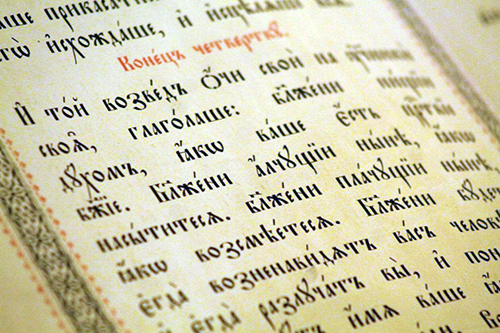 аше
гѡ̀ и҆схожда́ше, и҆ и҆сцѣлѧ́ше
Коне́цъ четверткꙋ̀.
И҆ то́й возве́дъ ѻ҆́чи своѝ на
своѧ̑, глаго́лаше: бл҃же́ни ни́щїи
дꙋ́хомъ, ꙗ҆́кѡ ва́ше є҆́сть црⷭ҇твїе
бж҃їе. Бл҃же́ни а҆́лчꙋщїи ны́нѣ, ꙗ҆́кѡ
насы́титесѧ. бл҃же́ни пла́чꙋщїи ны́нѣ,
ꙗ҆́кѡ возсмѣе́тесѧ. Бл҃же́ни бꙋ́де
є҆гда̀ возненави́дѧтъ ва́съ человѣ
є҆гда̀ разлꙋча́тъ вы̀, и҆ поно
и҆́мѧ ва́ше